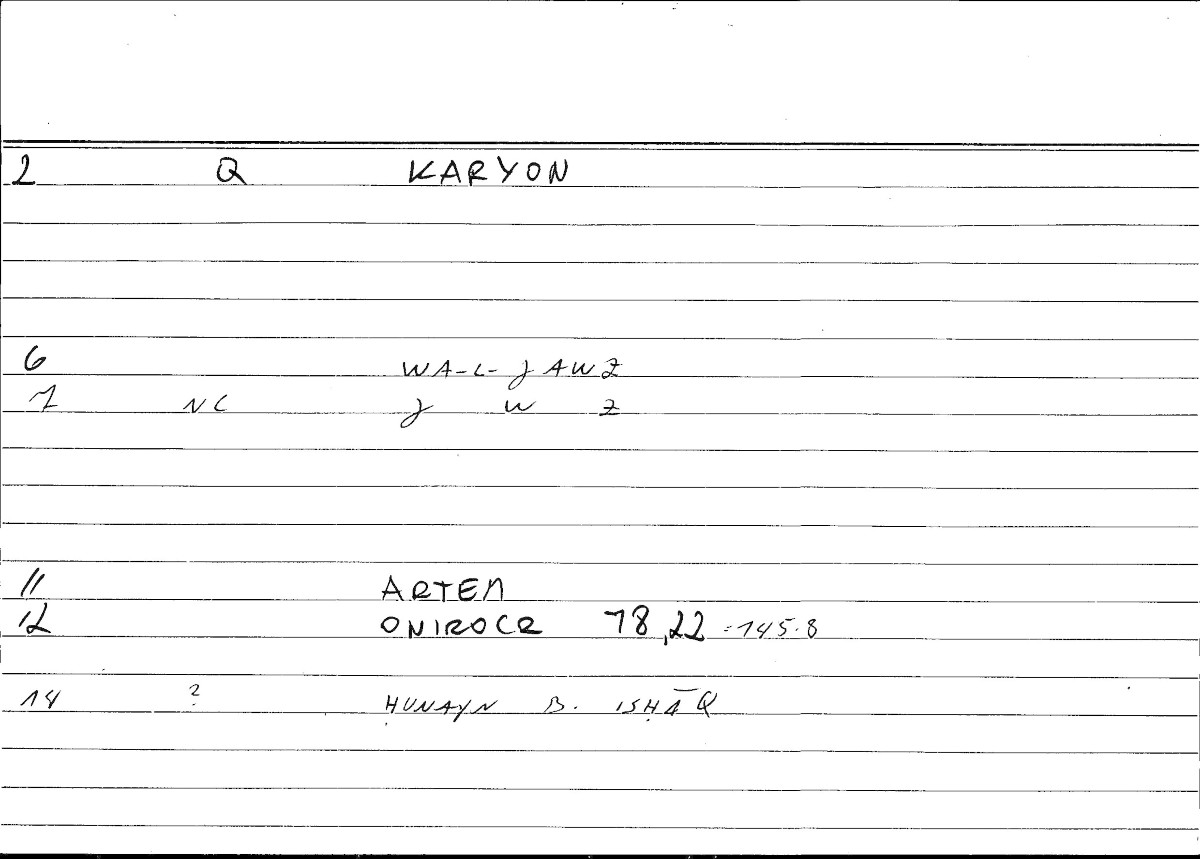 2 Q KARYON
6 WA-L-JAWZ
7 NC J W Z
11 ARTEM
12 ONIROCR 78,22 = 145.8
14 ? ḤUNAYN B. ISḤĀQ